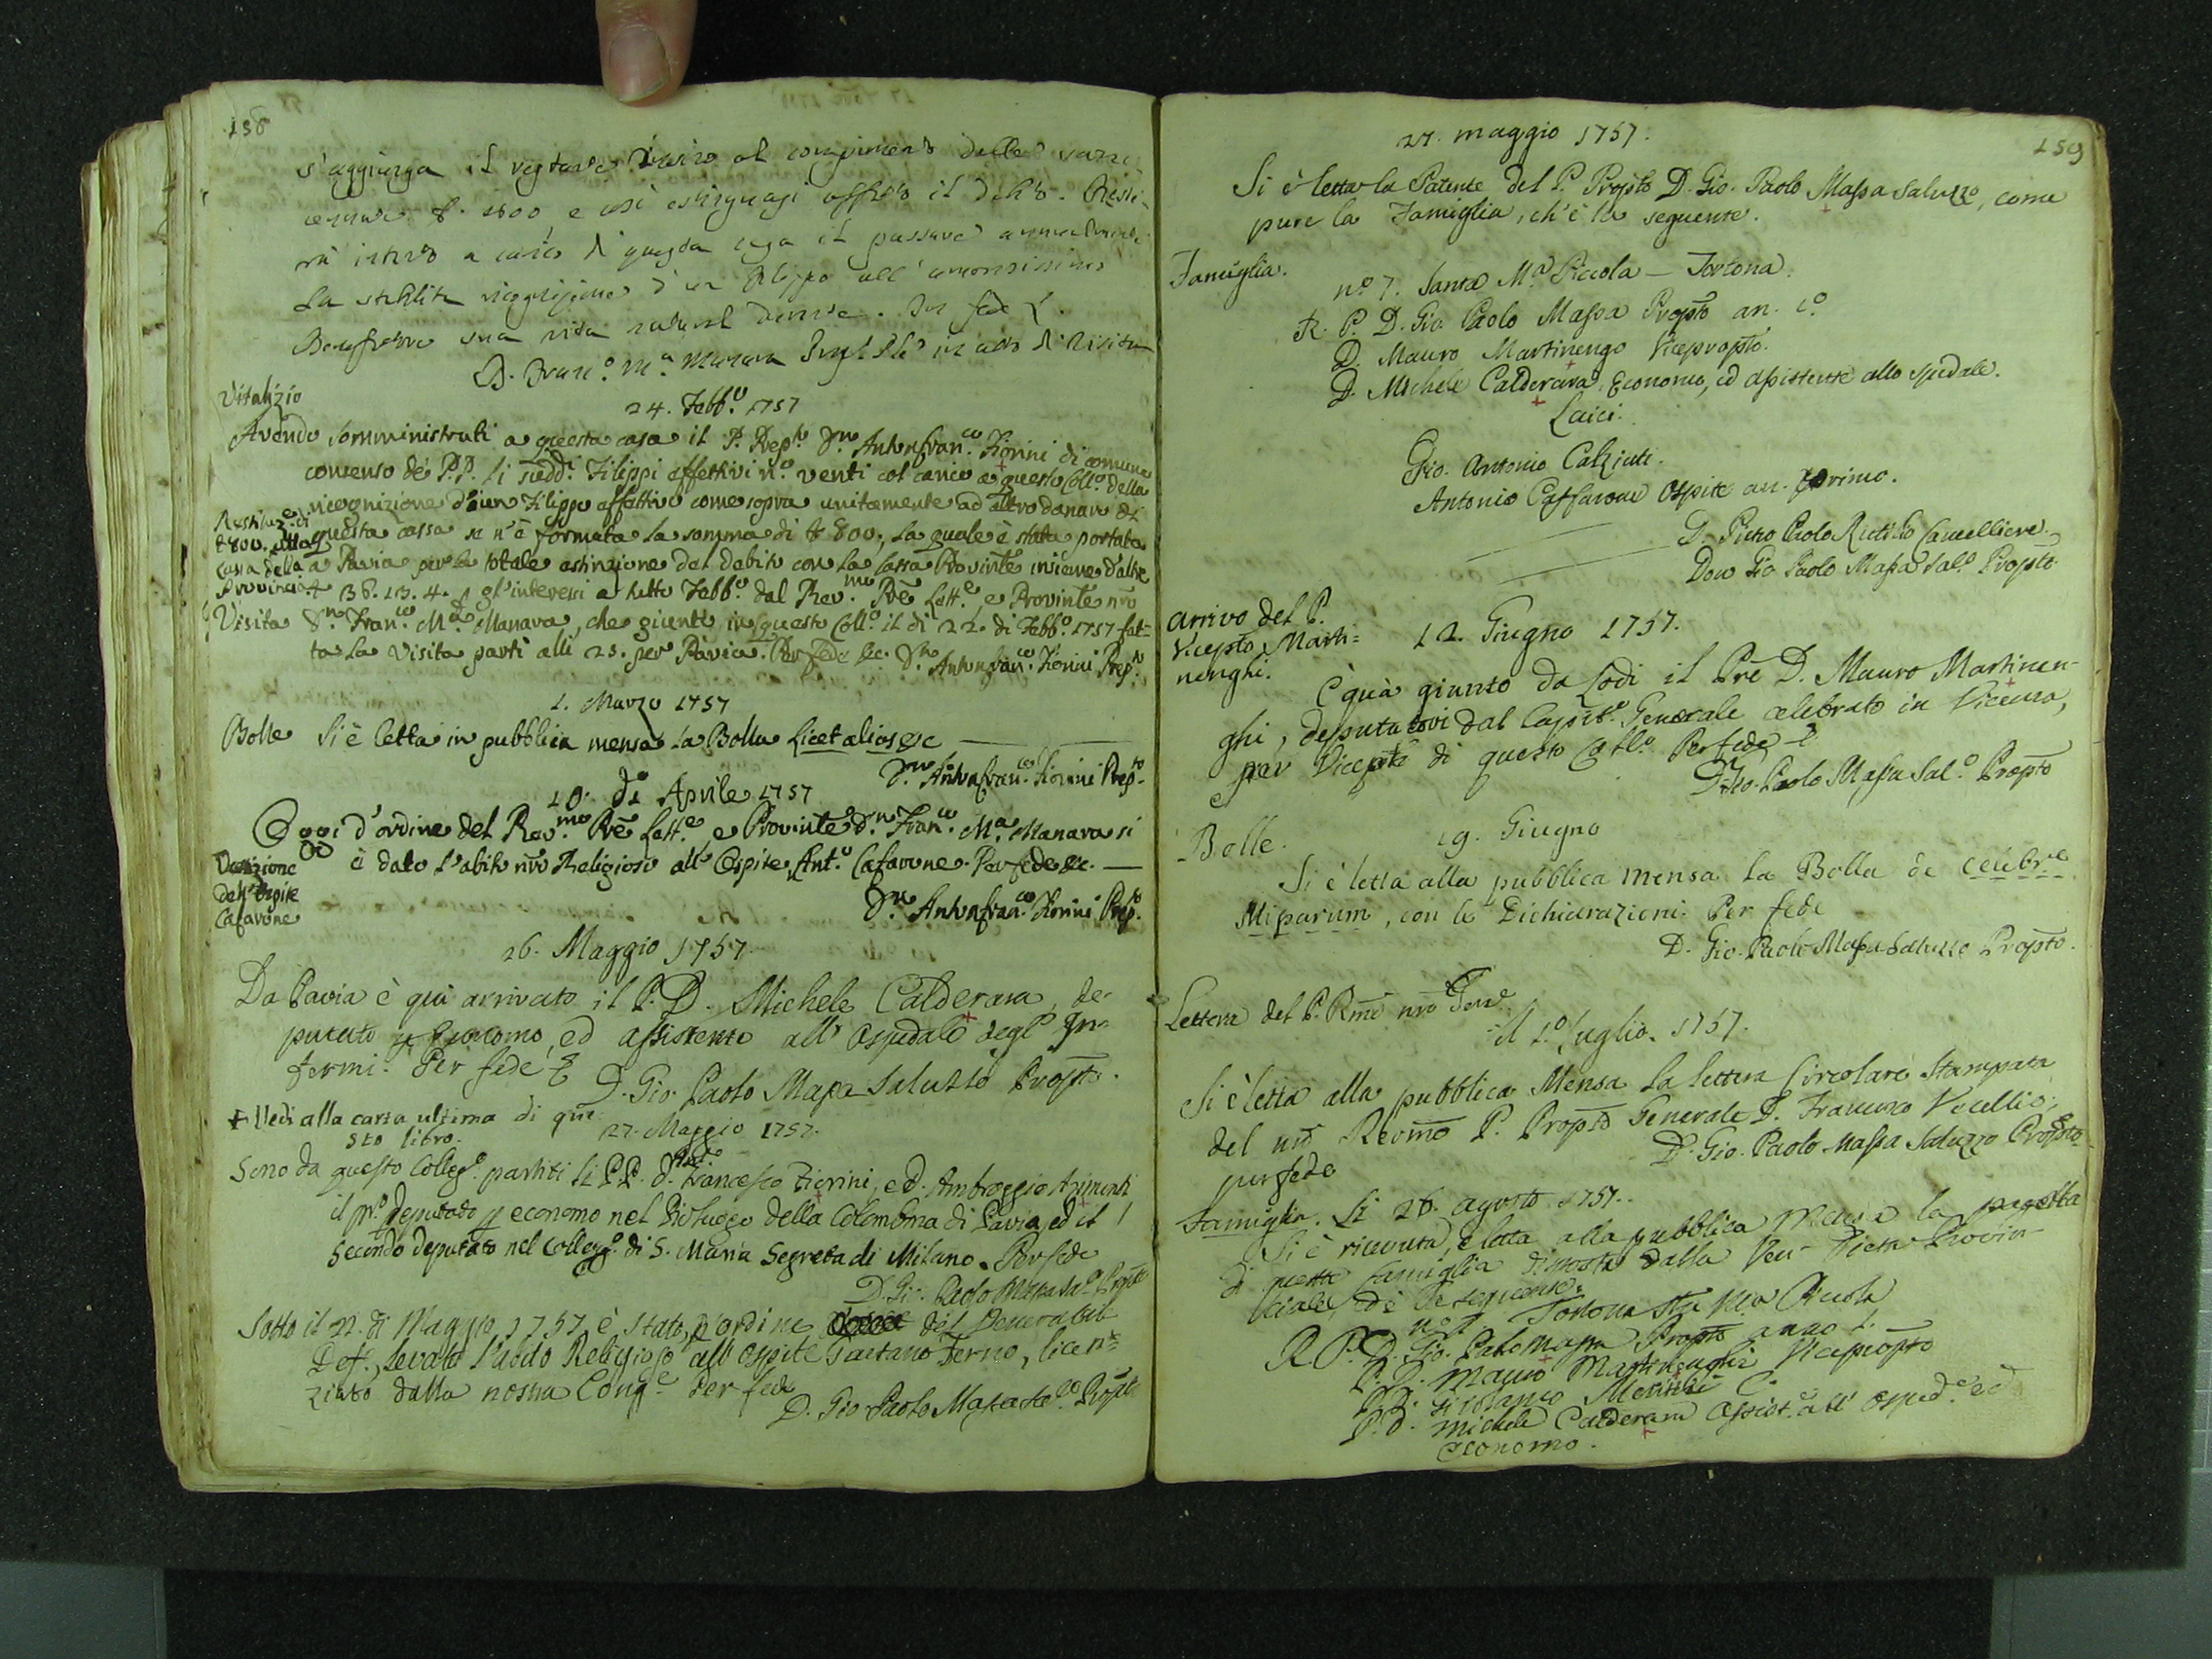 158
s'aggiunga il restante
£. 800 e così il debito.
a carico di questa casa il passare annualmente
la stabilita ricognizione d'un Filippo all'amorosissimo
Benefattore sua vita natural durante. In fede
D. Franc.º M.ª Manara in atto di Visita
Vitalizio
24. Febb.º 1757
Avendo somministrati a questa casa il P. Prep.to D.n Antonfran.co Fiorini di comune
consenso de' P.P. li sudd.i Filippi effettivi n.º venti col carico a questo Coll.º della
ricognizione d'un Filippo effettivo come sopra unitamente ad altro danaro di
questa cassa se n'è formata la somma di £ 800, la quale è stata portata
a Pavia per la totale estinzione del debito con la Cassa Provin.le insieme d'altre
£ 36. 13. 4. p gl'interessi a tutto Febb.º dal Rev.mo Prē Lett.e e Provin.le nrō
Visita D.n Fran.co M.ª Manara, che giunto in questo Coll.º il di 22. di Febb.º 1757 fat-
ta la Visita partì alli 25. per Pavia. Per fede &c. D.n Antonfran.co Fiorini Prep.to
1. Marzo 1757
Bolle Si è letta in pubblica mensa la Bolla Licet alias &c
D.n Antonfran.co Fiorini Prep.to
10. di Aprile 1757
Oggi d'ordine del Rev.mo Prē Lett.e e Provin.le D.n Fran.co M.ª Manara si
è dato l'abito nrō Religioso all'Ospite Ant.º Cafarone. Per fede &c.
dell'Ospite
Cafarone
D.n Antonfran.co Fiorini Prep.to
26. Maggio 1757.
Da Pavia è qui arrivato il P. D. Michele Calderara, de-
putato p Economo, ed assistente all'Ospedale degl'In-
fermi. Per fede &
D. Gio. Paolo Massa Saluzzo Propto.
+ Vedi alla carta ultima di que-
sto libro.
27. Maggio 1757.
Sono da questo Colleg.º partiti li P.P. D. Ant.º Francesco Fiorini, e D. Ambroggio Arimonti
il pr.º deputato p economo nel Pio luogo della Colombina di Pavia, ed il
secondo deputato nel Collegg.º di S. Maria Segreta di Milano. Per fede
D. Gio. Paolo Massa Sal.º Propto
Sotto il 22. di Maggio 1757 è stato, p ordine del Venerabile
Def., levato l'abito Religioso all'Ospite Gaetano Ferno, licen-
ziato dalla nostra Cong.e Per fede
D. Gio Paolo Massa Sal.º Propto
159
27. maggio 1757.
Si è letta la Patente del P. Propto D. Gio. Paolo Massa Saluzzo, come
pure la Famiglia, ch'è la seguente.
Famiglia.
nº 7. Santa M.ª Piccola – Tortona.
R. P. D. Gio Paolo Massa Propto an. 1.º
D. Mauro Martinengo Vicepropto.
D. Michele Calderara, Economo, ed assistente allo spedale.
Laici.
Gio. Antonio Calziati.
Antonio Caffarone Ospite an. primo.
D. Pietro Paolo Cancelliere
Don Gio Paolo Massa Sal.º Propto
Arrivo del P.
Vicepto Marti=
nenghi.
12. Giugno 1757.
È quà giunto da Lodi il Prē D. Mauro Martinen-
ghi, deputatovi dal Capit.º Generale celebrato in Vicenza,
per Vicepto di questo Coll.º Per fede &
D. Gio. Paolo Massa Sal.º Propto
Bolle.
19. Giugno
Si è letta alla pubblica mensa la Bolla de Celebr.e
Missarum, con le Dichiarazioni. Per fede
D. Gio. Paolo Massa Saluzzo Propto.
Lettera del P. Rmō nrō Gen.e
il 1.º Luglio. 1757.
Si è letta alla pubblica Mensa la lettera Circolare Stampata
del nrō Revmō P. Propto Generale D. Francesco Vecellio;
per fede
D. Gio. Paolo Massa Saluzzo Propto
Famiglia. Li 26. agosto 1757.
Si è ricevuta, e letta alla pubblica Mensa la pagella
di questa famiglia dalla Ven. Dieta Provin-
ciale, ed è la seguente.
nº 7. Tortona Sta Mia Picola
R. P. D. Gio. Paolo Massa Propto anno 1.
P. D. Mauro Martinenghi Vicepropto
P. D. Girolamo
P. D. Michele Calderara Assist.e all'Osped.e ed
economo.